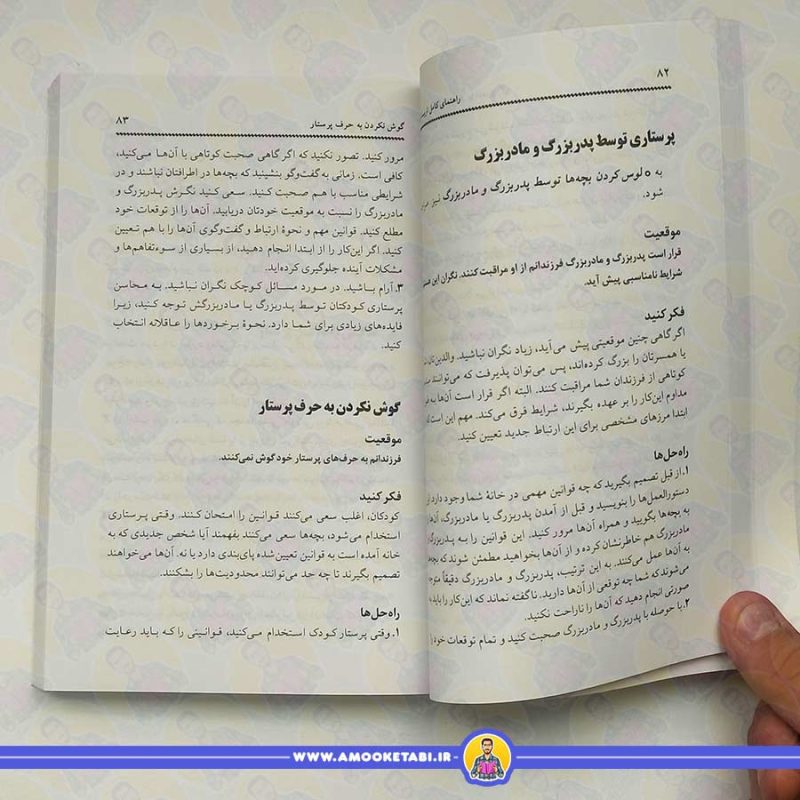 ۸۲
راهنمای کامل
پرستاری توسط پدربزرگ و مادربزرگ
به ه لوس کردن بچه‌ها توسط پدربزرگ و مادربزرگ نیز
شود.
موقعیت
قرار است پدربزرگ و مادربزرگ فرزندانم از او مراقبت کنند. نگران این
شرایط نامناسبی پیش آید.
فکر کنید
اگر گاهی چنین موقعیتی پیش می‌آید، زیاد نگران نباشید. والدین‌تان
یا همسرتان را بزرگ کرده‌اند، پس می‌توان پذیرفت که می‌توانند
کوتاهی از فرزندان شما مراقبت کنند. البته اگر قرار است آن‌ها به
مداوم این‌کار را بر عهده بگیرند، شرایط فرق می‌کند. مهم این است
ابتدا مرزهای مشخصی برای این ارتباط جدید تعیین کنید.
راه‌حل‌ها
۱. از قبل تصمیم بگیرید که چه قوانین مهمی در خانهٔ شما وجود دارد
دستورالعمل‌ها را بنویسید و قبل از آمدن پدربزرگ یا مادربزرگ، آن‌ها
به بچه‌ها بگویید و همراه آن‌ها مرور کنید. این قوانین را به پدربزرگ
مادربزرگ هم خاطرنشان کرده و از آن‌ها بخواهید مطمئن شوند که
به آن‌ها عمل می‌کنند. به این ترتیب، پدربزرگ و مادربزرگ دقیقاً
می‌شوند که شما چه توقعی از آن‌ها دارید. ناگفته نماند که این‌کار را باید
صورتی انجام دهید که آن‌ها را ناراحت نکنید.
۲. با حوصله با پدربزرگ و مادربزرگ صحبت کنید و تمام توقعات خود را
گوش نکردن به حرف پرستار
۸۳
مرور کنید. تصور نکنید که اگر گاهی صحبت کوتاهی با آن‌ها می‌کنید،
کافی است. زمانی به گفت‌وگو بنشینید که بچه‌ها در اطرافتان نباشند و در
شرایطی مناسب با هم صحبت کنید. سعی کنید نگرش پدربزرگ و
مادربزرگ را نسبت به موقعیت خودتان دریابید. آن‌ها را از توقعات خود
مطلع کنید. قوانین مهم و نحوهٔ ارتباط و گفت‌وگوی آن‌ها را با هم تعیین
کنید. اگر این‌کار را از ابتدا انجام دهید، از بسیاری از سوءتفاهم‌ها و
مشکلات آینده جلوگیری کرده‌اید.
۳. آرام باشید. در مورد مسائل کوچک نگران نباشید. به محاسن
پرستاری کودکتان توسط پدربزرگ یا مادربزرگش توجه کنید، زیرا
فایده‌های زیادی برای شما دارد. نحوهٔ برخوردها را عاقلانه انتخاب
کنید.
گوش نکردن به حرف پرستار
موقعیت
فرزندانم به حرف‌های پرستار خود گوش نمی‌کنند.
فکر کنید
کودکان، اغلب سعی می‌کنند قوانین را امتحان کنند. وقتی پرستاری
استخدام می‌شود، بچه‌ها سعی می‌کنند بفهمند آیا شخص جدیدی که به
خانه آمده است به قوانین تعیین‌شده پای‌بندی دارد یا نه. آن‌ها می‌خواهند
تصمیم بگیرند تا چه حد می‌توانند محدودیت‌ها را بشکنند.
راه‌حل‌ها
۱. وقتی پرستار کودک استخدام می‌کنید، قوانینی را که باید رعایت
WWW.AMOOKETABI.IR